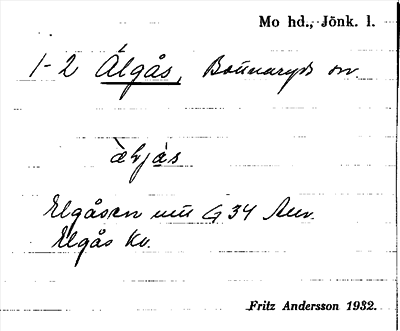 Mo hd., Jönk. l.
1-2 Älgås, Bottnaryds sn.
àljás
Elgåsen
G 34
Elgås Kv.
Fritz Andersson 1932.